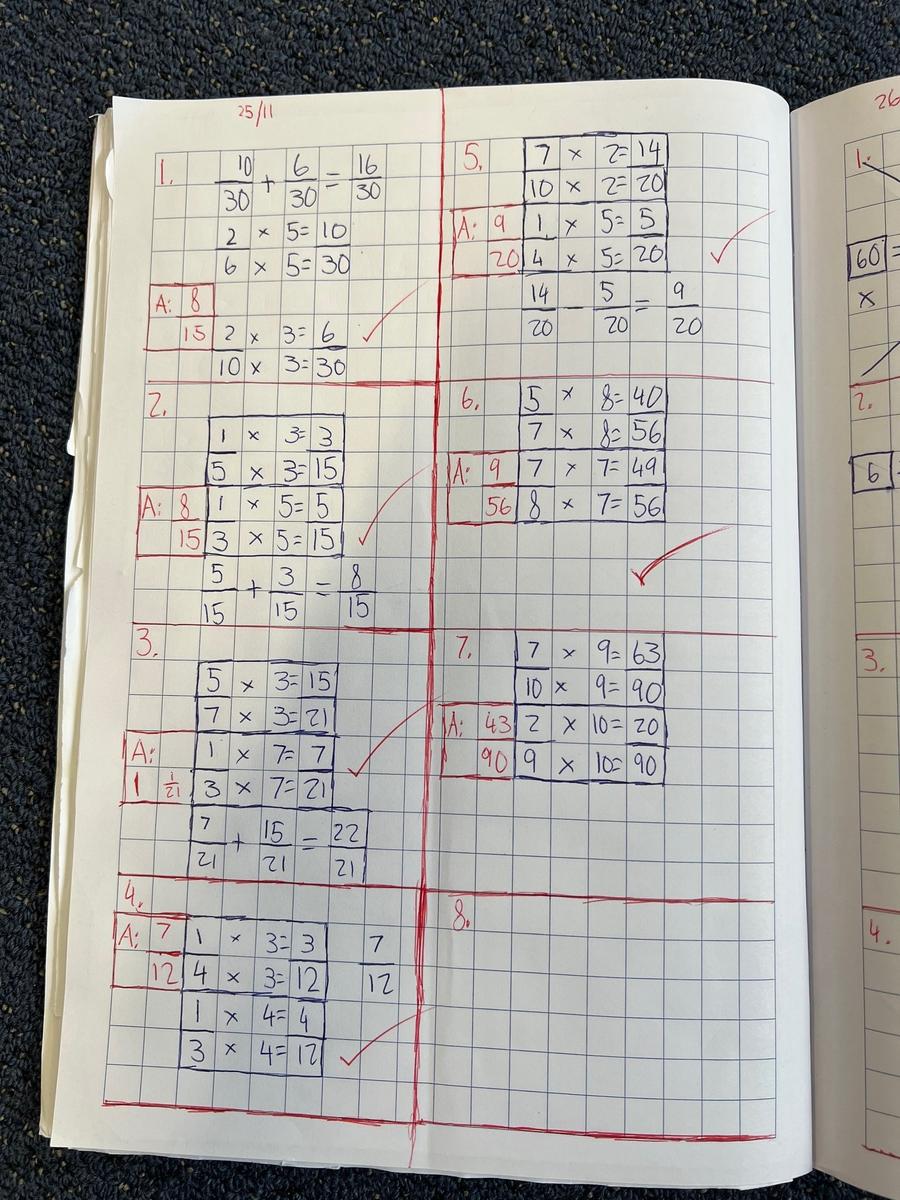 25/11
1.
10/30 + 6/30 = 16/30
2 × 5 = 10
6 × 5 = 30
A: 8/15
2 × 3 = 6
10 × 3 = 30
2.
1 × 3 = 3
5 × 3 = 15
A: 8/15
1 × 5 = 5
3 × 5 = 15
5/15 + 3/15 = 8/15
3.
5 × 3 = 15
7 × 3 = 21
A: 1 1/21
1 × 7 = 7
3 × 7 = 21
7/21 + 15/21 = 22/21
4.
A: 7/12
1 × 3 = 3
4 × 3 = 12
7/12
1 × 4 = 4
3 × 4 = 12
5.
7 × 2 = 14
10 × 2 = 20
A: 9/20
1 × 5 = 5
4 × 5 = 20
14/20 − 5/20 = 9/20
6.
5 × 8 = 40
7 × 8 = 56
A: 9/56
7 × 7 = 49
8 × 7 = 56
7.
7 × 9 = 63
10 × 9 = 90
A: 43/90
2 × 10 = 20
9 × 10 = 90
8.
26
1.
60 =
×
2.
6
3.
4.